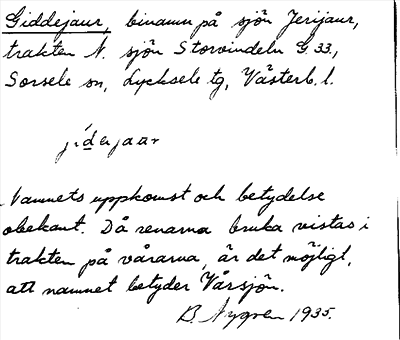 Giddejaur, binamn på sjön Jerijaur,
trakten N. sjön Storvindeln G.33,
Sorsele sn, Lycksele tg, Västerb. l.
jídejaar
Namnets uppkomst och betydelse
obekant. Då renarna bruka vistas i
trakten på vårarna, är det möjligt,
att namnet betyder Vårsjön.
B. Nygren 1935.